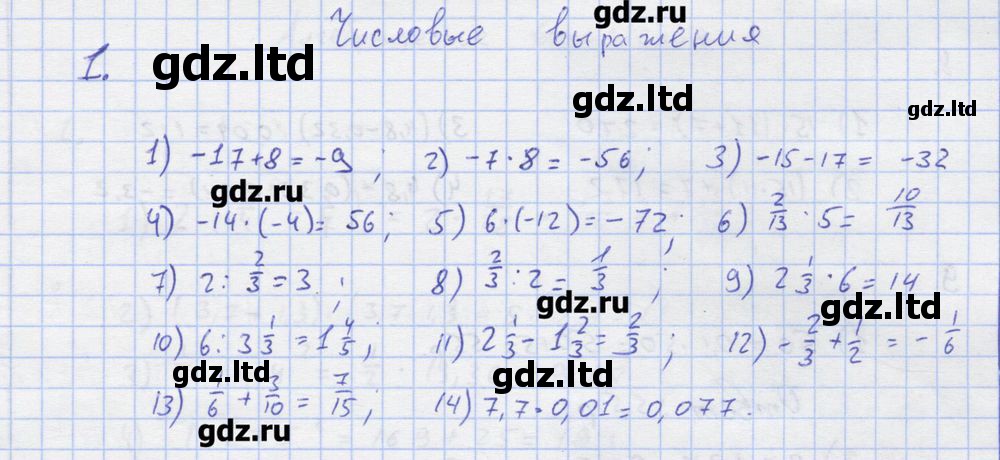 gdz.ru
Числовые выражения
1. gdz.ltd
gdz.ltd
1) -17+8 = -9 ; 2) -7·8 = -56; 3) -15-17 = -32
gdz.ru
gdz.ru
4) -14·(-4)= 56; 5) 6·(-12)=-72; 6) 2/13 · 5 = 10/13
7) 2 : 2/3 = 3 ; 8) 2/3 : 2 = 1/3 ; 9) 2 1/3 · 6 = 14
gdz.ru
gdz.ltd
10) 6 : 3 1/3 = 1 4/5 ; 11) 2 1/3 - 1 2/3 = 2/3 ; 12) -2/3 + 1/2 = -1/6
gdz.ltd
gdz.ltd
13) 1/6 + 3/10 = 7/15 ; 14) 7,7·0,01 = 0,077.
gdz.ltd
gdz.ru